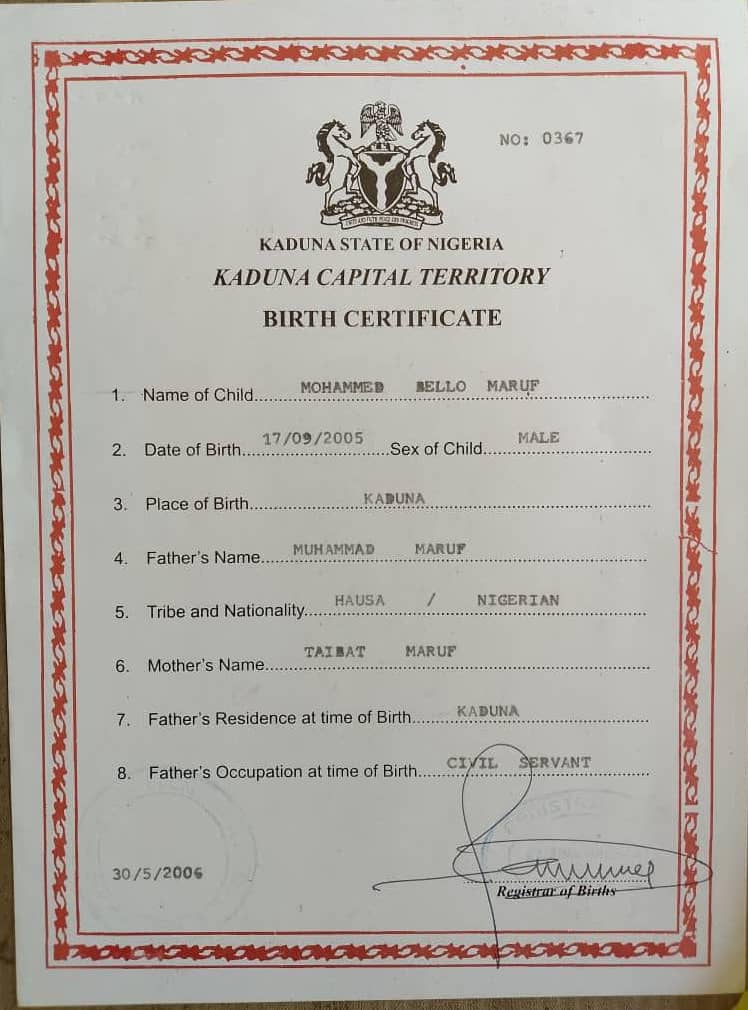 NO: 0367
KADUNA STATE OF NIGERIA
KADUNA CAPITAL TERRITORY
BIRTH CERTIFICATE
1. Name of Child....MOHAMMED BELLO MARUF
2. Date of Birth....17/09/2005....Sex of Child....MALE
3. Place of Birth....KADUNA
4. Father's Name....MUHAMMAD MARUF
5. Tribe and Nationality....HAUSA / NIGERIAN
6. Mother's Name....TAIBAT MARUF
7. Father's Residence at time of Birth....KADUNA
8. Father's Occupation at time of Birth....CIVIL SERVANT
30/5/2006
Registrar of Births